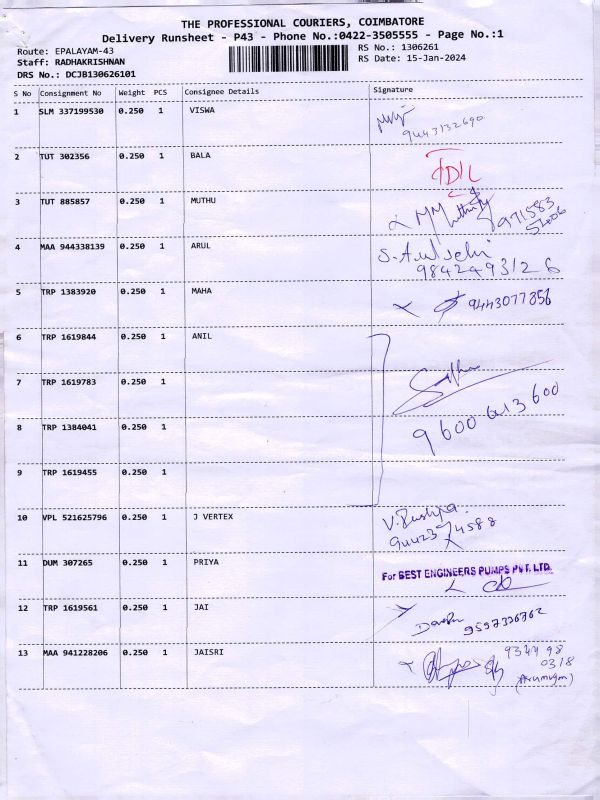 THE PROFESSIONAL COURIERS, COIMBATORE
Delivery Runsheet - P43 - Phone No.:0422-3505555 - Page No.:1
Route: EPALAYAM-43 RS No.: 1306261
Staff: RADHAKRISHNAN RS Date: 15-Jan-2024
DRS No.: DCJB130626101
S No Consignment No Weight PCS Consignee Details Signature
1 SLM 337199530 0.250 1 VISWA
9443132690
2 TUT 302356 0.250 1 BALA
3 TUT 885857 0.250 1 MUTHU
4 MAA 944338139 0.250 1 ARUL
9842493126
5 TRP 1383920 0.250 1 MAHA 9443077856
6 TRP 1619844 0.250 1 ANIL
7 TRP 1619783 0.250 1
8 TRP 1384041 0.250 1 9600613600
9 TRP 1619455 0.250 1
10 VPL 521625796 0.250 1 J VERTEX V. Pushpa
11 DUM 307265 0.250 1 PRIYA For BEST ENGINEERS PUMPS PVT. LTD.
12 TRP 1619561 0.250 1 JAI
13 MAA 941228206 0.250 1 JAISRI 934498
0318
(Arumugam)